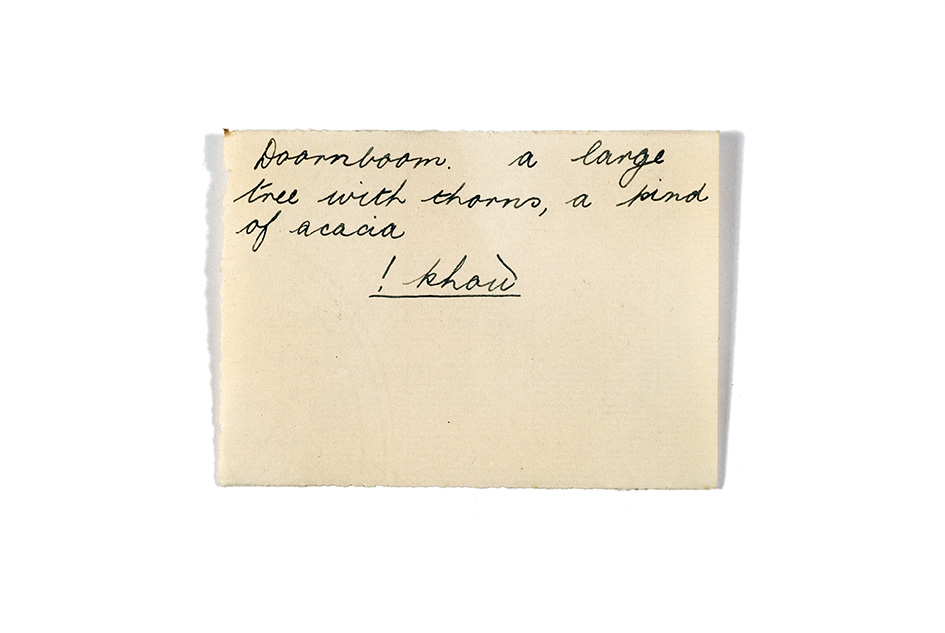 Doornboom. a large
tree with thorns, a kind
of acacia
! khoù